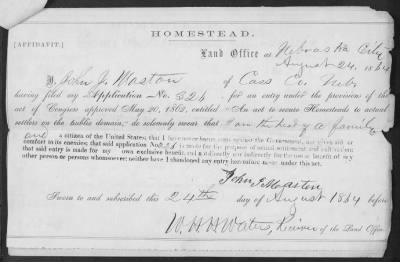 HOMESTEAD.
[AFFIDAVIT.]
Land Office at Nebraska City
August 24, 1864
I, John J. Maston of Cass Co. Neb.
having filed my Application No. 326 for an entry under the provisions of the
act of Congress approved May 20, 1862, entitled "An act to secure Homesteads to actual
settlers on the public domain," do solemnly swear that I am the head of a family
and a citizen of the United States; that I have never borne arms against the Government, nor given aid or
comfort to its enemies; that said application No. is made for the purpose of actual settlement and cultivation;
that said entry is made for my own exclusive benefit, and not directly nor indirectly for the use or benefit of any
other person or persons whomsoever; neither have I abandoned any entry heretofore made under this act.
John Maston
Sworn to and subscribed this 24th day of August 1864 before
W. H. H. Waters, Receiver of the Land Office.